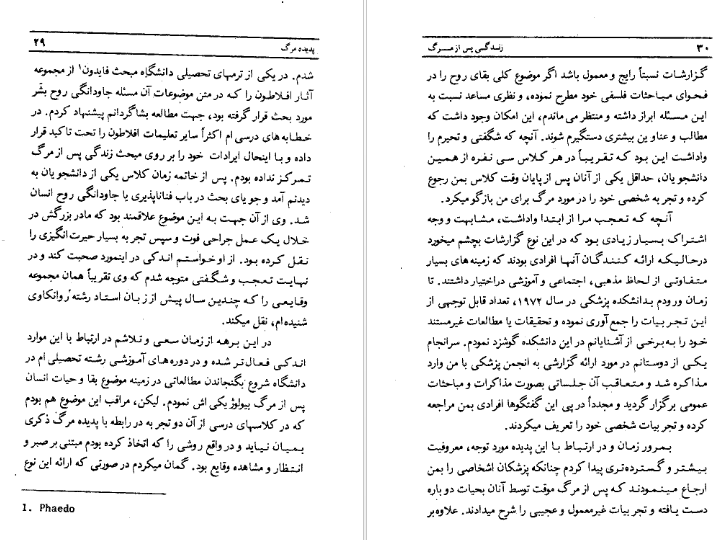 پدیده مرگ ۲۹
شدم. در یکی از ترمهای تحصیلی دانشگاه مبحث فایدون¹ از مجموعه
آثار افلاطون را که در متن موضوعات آن مسئله جاودانگی روح بشر
مورد بحث قرار گرفته بود، جهت مطالعه بشاگردانم پیشنهاد کردم. در
خطابه‌های درسی ام اکثراً سایر تعلیمات افلاطون را تحت تاکید قرار
داده و با اینحال ایرادات خود را بر روی مبحث زندگی پس از مرگ
تمرکز نداده بودم. پس از خاتمه زمان کلاس یکی از دانشجویان به
دیدنم آمد و جویای بحث در باب فناناپذیری یا جاودانگی روح انسان
شد. وی از آن جهت به این موضوع علاقمند بود که مادر بزرگش در
خلال یک عمل جراحی فوت و سپس تجربه بسیار حیرت انگیزی را
نقل کرده بود. از او خواستم اندکی در اینمورد صحبت کند و در
نهایت تعجب و شگفتی متوجه شدم که وی تقریباً همان مجموعه
وقایعی را که چندین سال پیش از زبان استاد رشته روانکاوی
شنیده‌ام، نقل میکند.
در این برهه از زمان سعی و تلاشم در ارتباط با این موارد
اندکی فعال‌تر شده و در دوره‌های آموزشی رشته تحصیلی ام در
دانشگاه شروع بگنجاندن مطالعاتی در زمینه موضوع بقا و حیات انسان
پس از مرگ بیولوژیکی اش نمودم. لیکن، مراقب این موضوع هم بودم
که در کلاسهای درسی از آن دو تجربه در رابطه با پدیده مرگ ذکری
بمیان نیاید و در واقع روشی را که اتخاذ کرده بودم مبتنی بر صبر و
انتظار و مشاهده وقایع بود. گمان میکردم در صورتی که ارائه این نوع
1. Phaedo
۳۰ زندگی پس از مرگ
گزارشات نسبتاً رایج و معمول باشد اگر موضوع کلی بقای روح را در
فحوای مباحثات فلسفی خود مطرح نموده، و نظری مساعد نسبت به
این مسئله ابراز داشته و منتظر می ماندم، این امکان وجود داشت که
مطالب و عناوین بیشتری دستگیرم شوند. آنچه که شگفتی و تحیرم را
واداشت این بود که تقریباً در هر کلاس سی نفره از همین
دانشجویان، حداقل یکی از آنان پس از پایان وقت کلاس بمن رجوع
کرده و تجربه شخصی خود را در مورد مرگ برای من بازگو میکرد.
آنچه که تعجب مرا از ابتدا واداشت، مشابهت و وجه
اشتراک بسیار زیادی بود که در این نوع گزارشات بچشم میخورد
درحالیکه ارائه کنندگان آنها افرادی بودند که زمینه‌های بسیار
متفاوتی از لحاظ مذهبی، اجتماعی و آموزشی دراختیار داشتند. تا
زمان ورودم بدانشکده پزشکی در سال ۱۹۷۲، تعداد قابل توجهی از
این تجربیات را جمع آوری نموده و تحقیقات یا مطالعات غیرمستند
خود را به برخی از آشنایانم در این دانشکده گوشزد نمودم. سرانجام
یکی از دوستانم در مورد ارائه گزارشی به انجمن پزشکی با من وارد
مذاکره شد و متعاقب آن جلساتی بصورت مذاکرات و مباحثات
عمومی برگزار گردید و مجدداً در پی این گفتگوها افرادی بمن مراجعه
کرده و تجربیات شخصی خود را تعریف میکردند.
بمرور زمان و در ارتباط با این پدیده مورد توجه، معروفیت
بیشتر و گسترده‌تری پیدا کردم چنانکه پزشکان اشخاصی را بمن
ارجاع مینمودند که پس از مرگ موقت توسط آنان بحیات دوباره
دست یافته و تجربیات غیرمعمول و عجیبی را شرح میدادند. علاوه بر